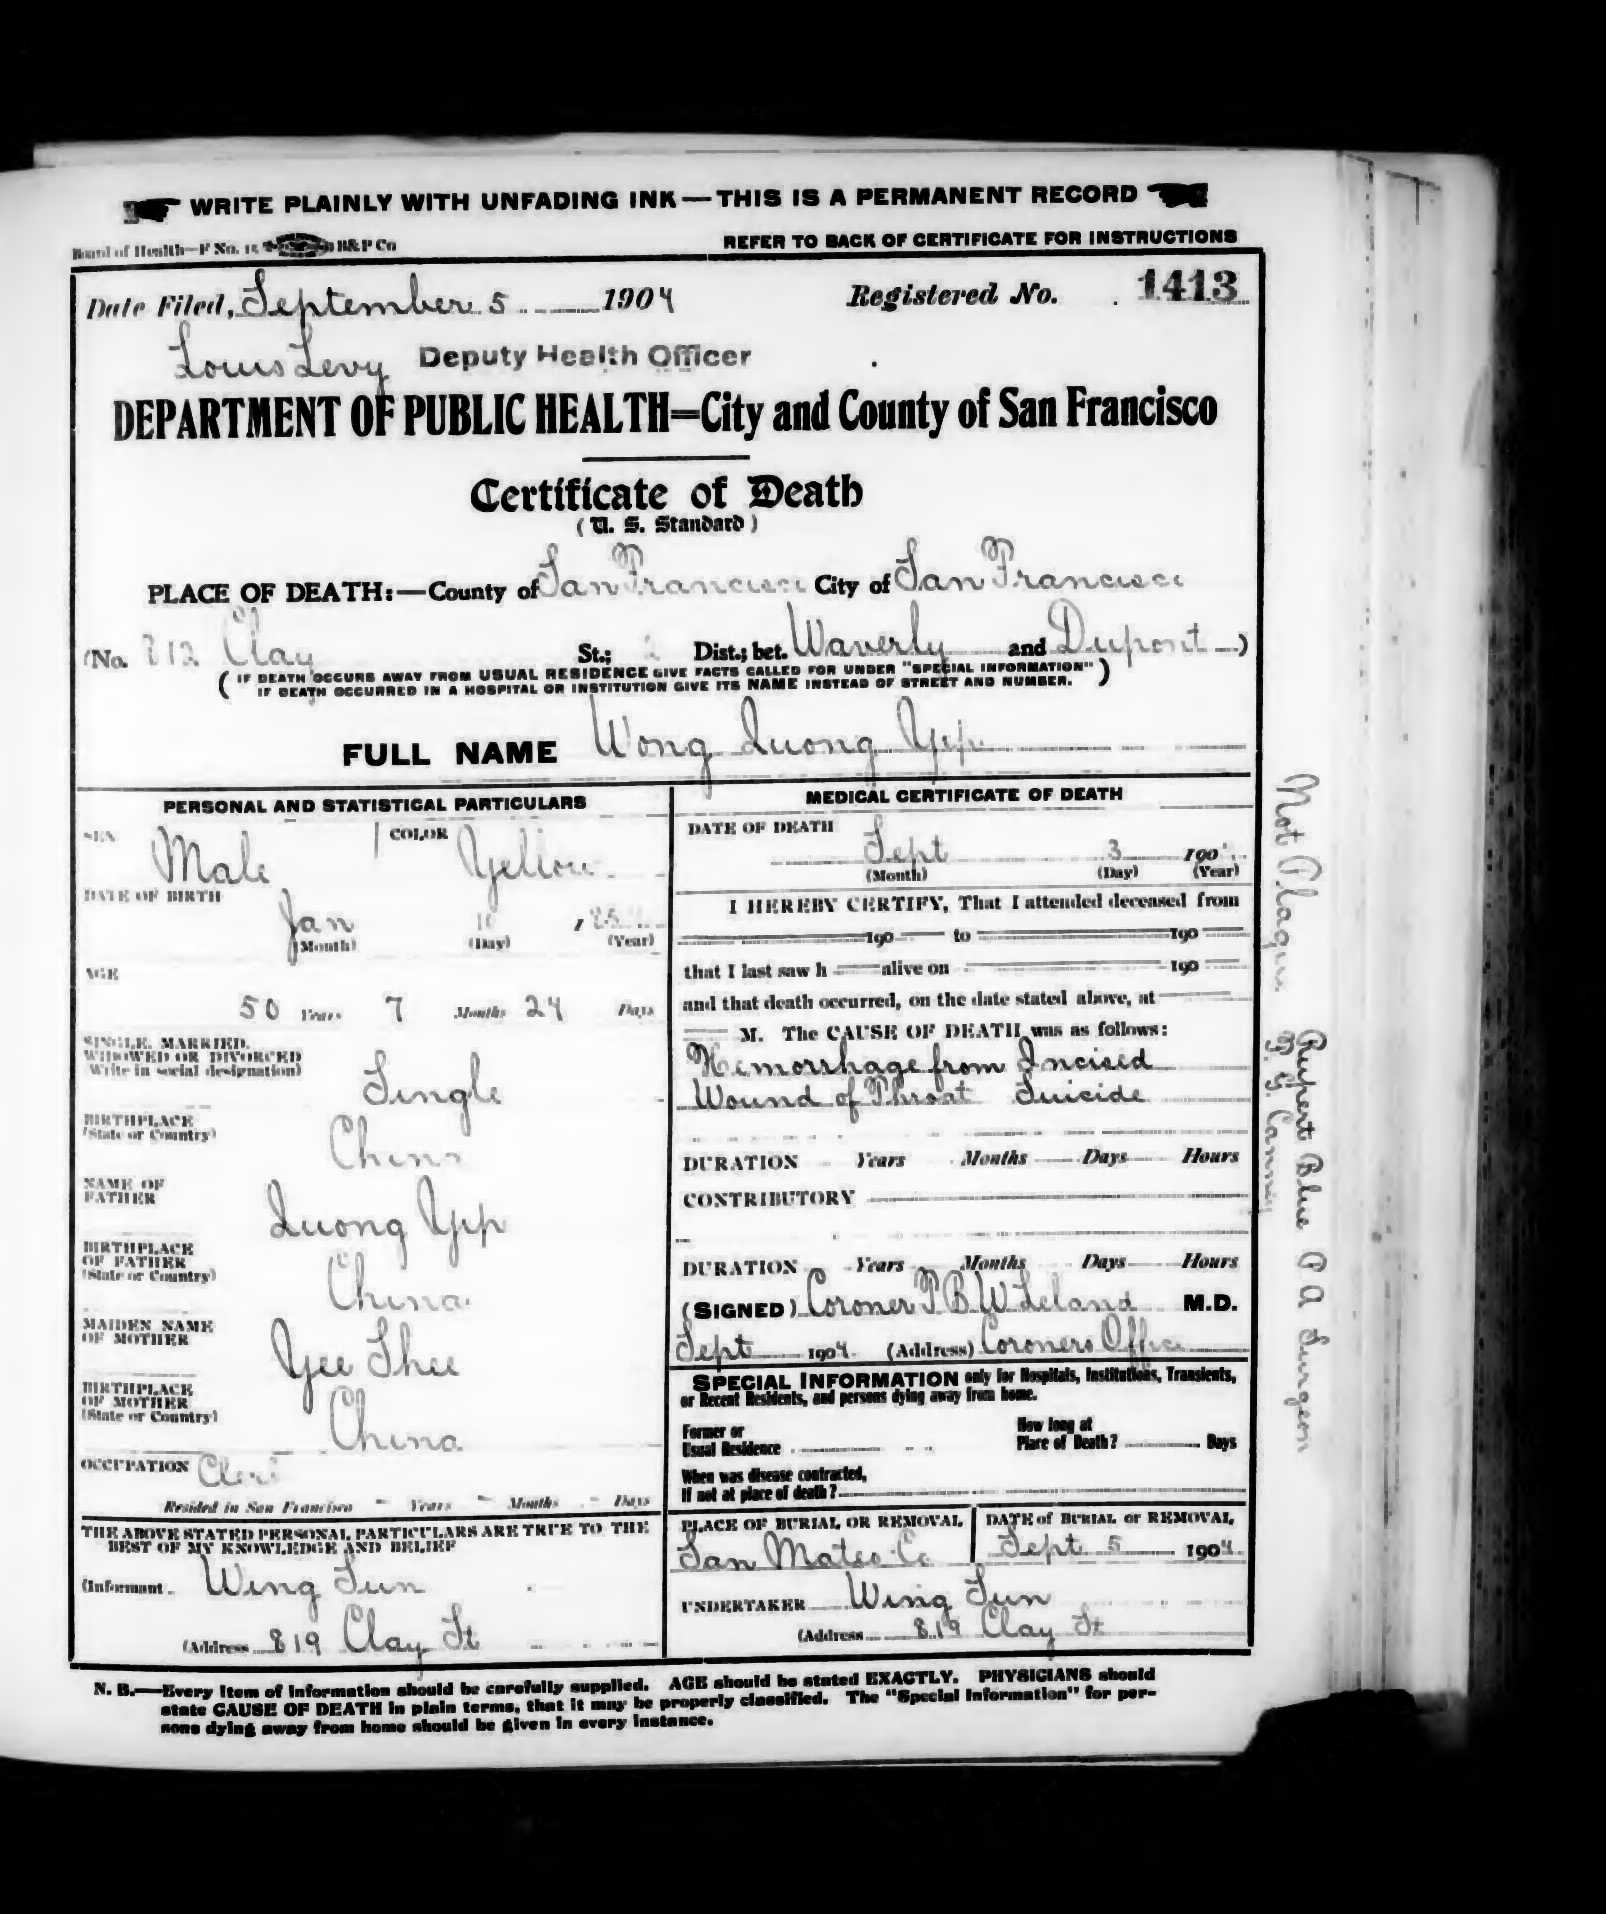 WRITE PLAINLY WITH UNFADING INK—THIS IS A PERMANENT RECORD
Board of Health—F No. 15 B&P Co
REFER TO BACK OF CERTIFICATE FOR INSTRUCTIONS
Date Filed, September 5 1904 Registered No. 1413
Louis Levy Deputy Health Officer
DEPARTMENT OF PUBLIC HEALTH=City and County of San Francisco
Certificate of Death
(U. S. Standard)
PLACE OF DEATH:—County of San Francisco City of San Francisco
(No. 812 Clay St.; 2 Dist.; bet. Waverly and Dupont)
( IF DEATH OCCURS AWAY FROM USUAL RESIDENCE GIVE FACTS CALLED FOR UNDER "SPECIAL INFORMATION"
IF DEATH OCCURRED IN A HOSPITAL OR INSTITUTION GIVE ITS NAME INSTEAD OF STREET AND NUMBER. )
FULL NAME Wong Quong Ypp
PERSONAL AND STATISTICAL PARTICULARS
SEX Male COLOR Yellow
DATE OF BIRTH
Jan 10
(Month) (Day) (Year)
AGE
50 Years 7 Months 24 Days
SINGLE, MARRIED,
WIDOWED OR DIVORCED
(Write in social designation)
Single
BIRTHPLACE
(State or Country)
China
NAME OF
FATHER
Quong Ypp
BIRTHPLACE
OF FATHER
(State or Country)
China
MAIDEN NAME
OF MOTHER
Yee Shee
BIRTHPLACE
OF MOTHER
(State or Country)
China
OCCUPATION Clerk
Resided in San Francisco - Years - Months - Days
THE ABOVE STATED PERSONAL PARTICULARS ARE TRUE TO THE
BEST OF MY KNOWLEDGE AND BELIEF
(Informant Wing Sun
(Address 819 Clay St
MEDICAL CERTIFICATE OF DEATH
DATE OF DEATH
Sept 3 190
(Month) (Day) (Year)
I HEREBY CERTIFY, That I attended deceased from
190 to 190
that I last saw h alive on 190
and that death occurred, on the date stated above, at
M. The CAUSE OF DEATH was as follows:
Hemorrhage from Incised
Wound of Throat Suicide
DURATION Years Months Days Hours
CONTRIBUTORY
DURATION Years Months Days Hours
(SIGNED) Coroner T B W Leland M.D.
Sept 1904 (Address) Coroners Office
SPECIAL INFORMATION only for Hospitals, Institutions, Transients,
or Recent Residents, and persons dying away from home.
Former or
Usual Residence
How long at
Place of Death? Days
When was disease contracted,
If not at place of death?
PLACE OF BURIAL OR REMOVAL
San Mateo Co
DATE of BURIAL or REMOVAL
Sept 5 1904
UNDERTAKER Wing Sun
(Address 819 Clay St
N. B.—Every item of information should be carefully supplied. AGE should be stated EXACTLY. PHYSICIANS should
state CAUSE OF DEATH in plain terms, that it may be properly classified. The "Special Information" for per-
sons dying away from home should be given in every instance.
Not Plague
Rupert Blue P A Surgeon